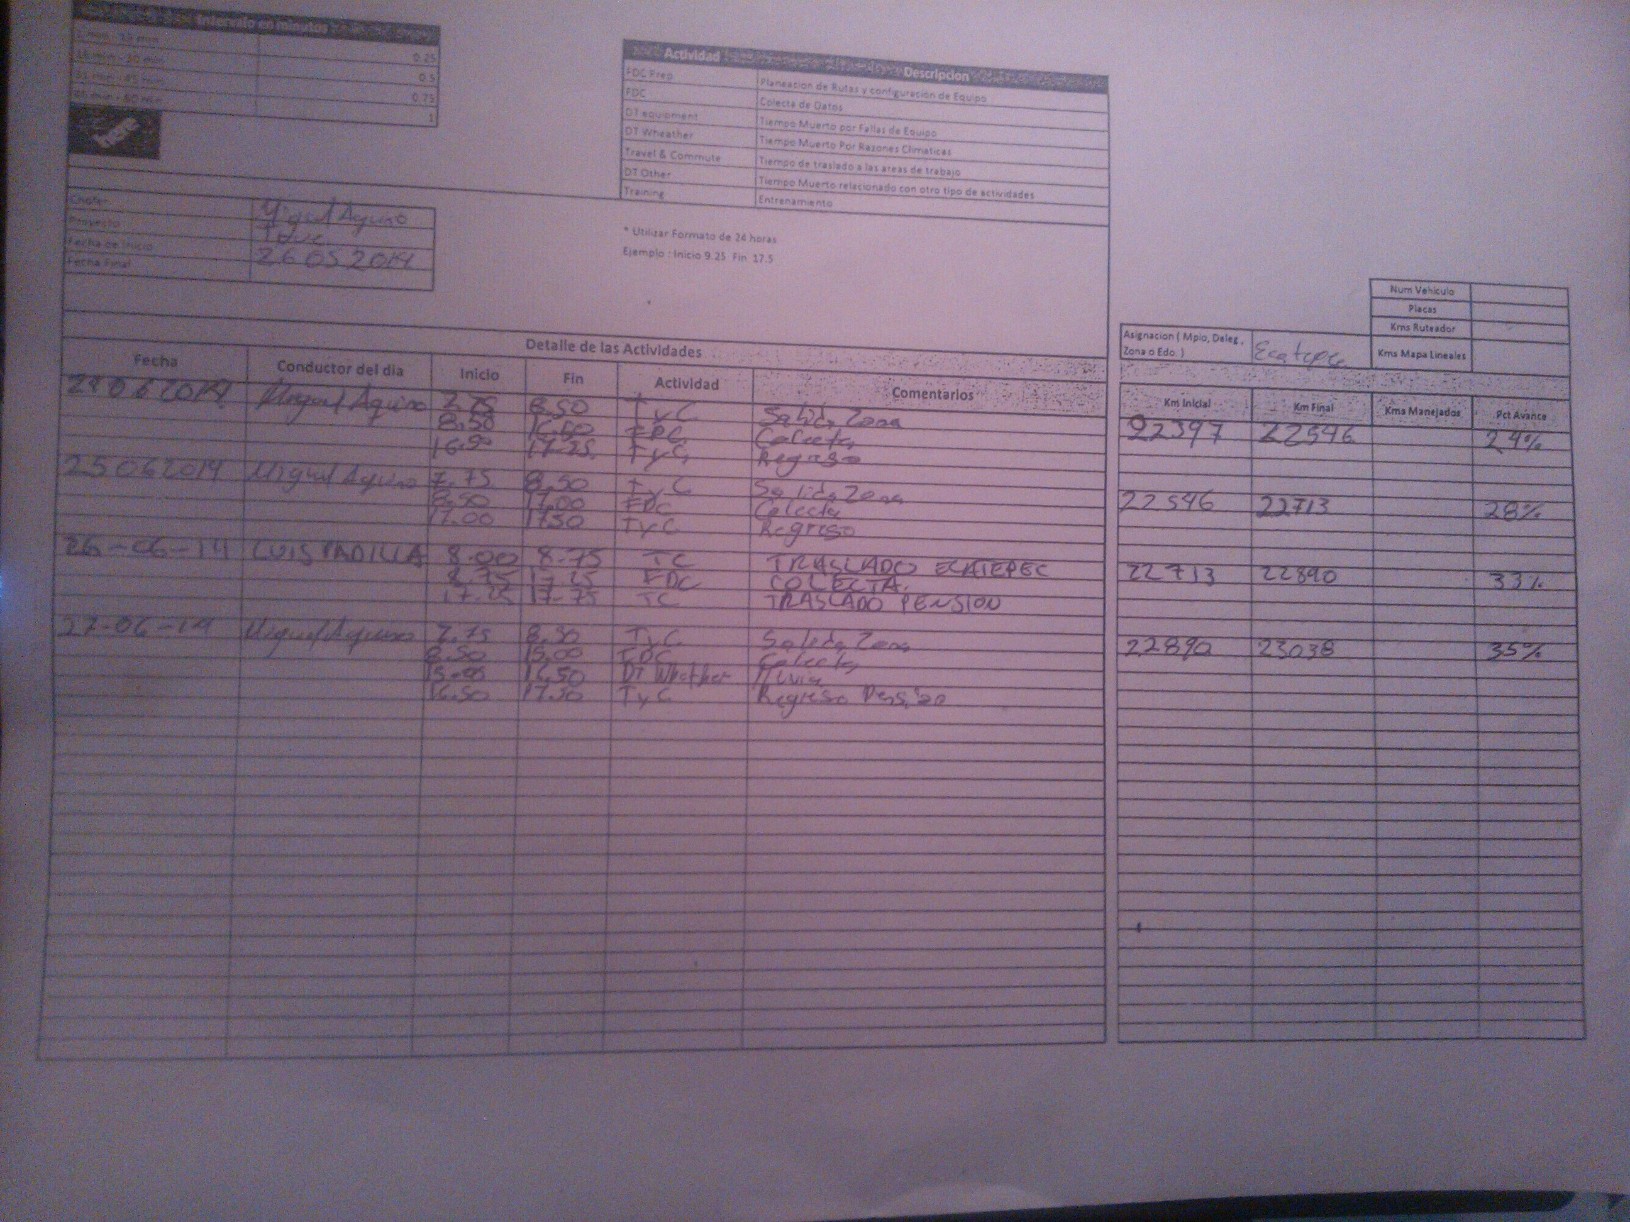 Intervalo en minutos
1 min - 15 min 0.25
16 min - 30 min 0.5
31 min - 45 min 0.75
46 min - 60 min 1
Actividad Descripcion
FDC Prep Planeacion de Rutas y configuración de Equipo
FDC Colecta de Datos
DT equipment Tiempo Muerto por Fallas de Equipo
DT Wheather Tiempo Muerto Por Razones Climaticas
Travel & Commute Tiempo de traslado a las areas de trabajo
DT Other Tiempo Muerto relacionado con otro tipo de actividades
Training Entrenamiento
Chofer Miguel Aquino
Proyecto
Fecha de Inicio 26 05 2014
Fecha Final
* Utilizar Formato de 24 horas
Ejemplo : Inicio 9.25 Fin 17.5
Num Vehiculo
Placas
Kms Ruteador
Kms Mapa Lineales
Asignacion ( Mpio, Deleg, Zona o Edo. ) Ecatepec
Detalle de las Actividades
Fecha Conductor del dia Inicio Fin Actividad Comentarios Km Inicial Km Final Kms Manejados Pct Avance
24 06 2014 Miguel Aquino 7.75 8.50 TyC Salida Zona 22397 22546 24%
8.50 16.50 FDC Colecta
16.50 17.25 TyC Regreso
25 06 2014 Miguel Aquino 7.75 8.50 TyC Salida Zona 22546 22713 28%
8.50 17.00 FDC Colecta
17.00 17.50 TyC Regreso
26-06-14 LUIS PADILLA 8.00 8.75 TC TRASLADO ECATEPEC 22713 22890 33%
8.75 17.25 FDC COLECTA.
17.25 17.75 TC TRASLADO PENSION
27-06-14 Miguel Aquino 7.75 8.50 TyC Salida Zona 22890 23038 35%
8.50 15.00 FDC Colecta
15.00 16.50 DT Whether lluvia
16.50 17.50 TyC Regreso Pension